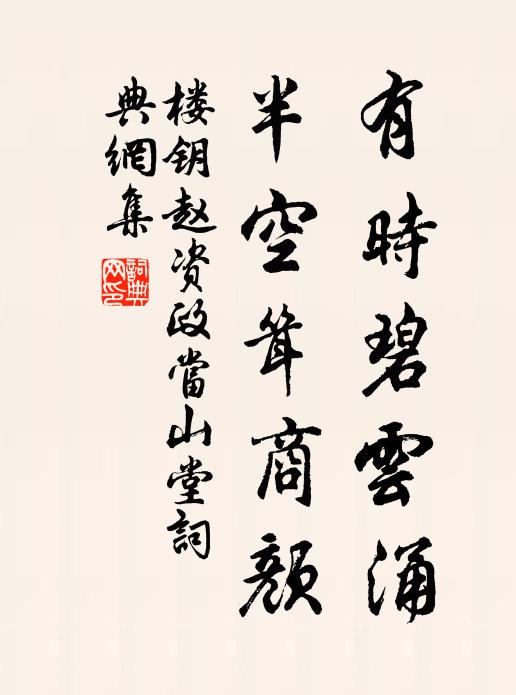 有時碧雲涌
半空耸商顔
楼钥赵资政當山堂詞
典網集
詞典
网印